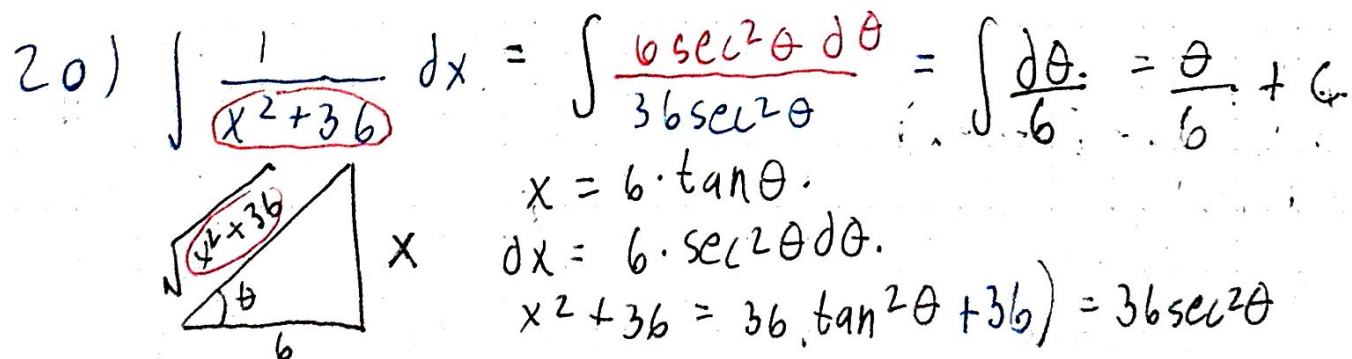 20) ∫ 1/(x²+36) dx = ∫ 6sec²θ dθ/(36sec²θ) = ∫ dθ/6 = θ/6 + C
x = 6·tanθ.
√(x²+36) x dx = 6·sec²θdθ.
θ x²+36 = 36.tan²θ+36) = 36sec²θ
6